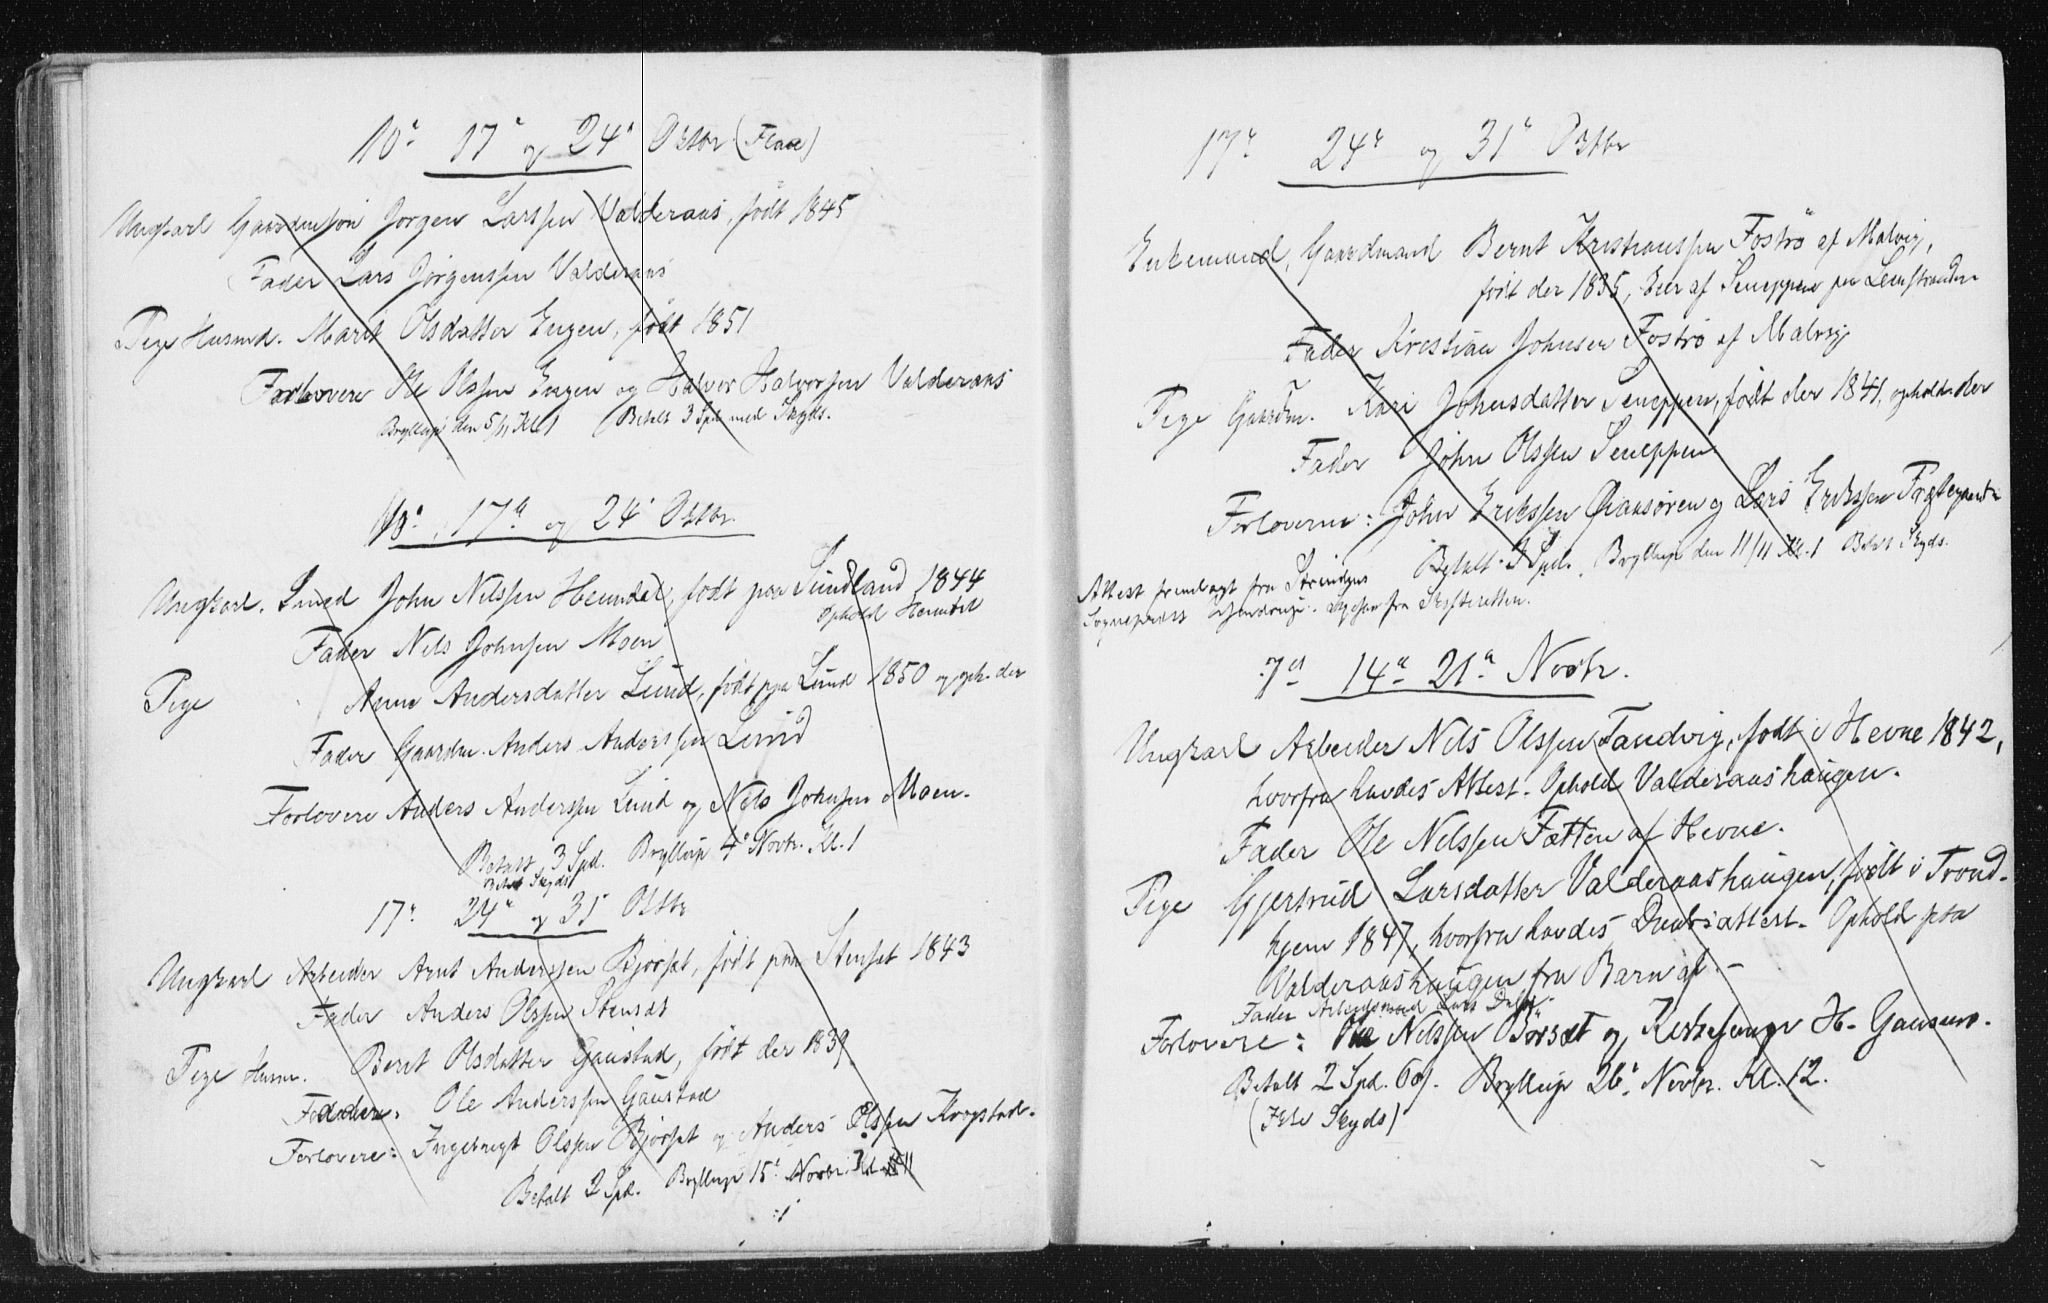 10de 17de og 24de Oktbr (Flaa)
Ungkarl Gaardmsøn Jørgen Larssen Valderaas, født 1845
Fader Lars Jørgenssen Valderaas
Pige Husmd. Marit Olsdatter Engen, født 1851
Forlovere Ole Olssen Engen og Halvor Halvorssen Valderaas
Bryllup den 5/11 Kl 1 Betalt 3 Spd med Skyds.
10de, 17de og 24de Oktbr.
Ungkarl. Smed John Nilssen Heimdal, født paa Sundland 1844
Ophold Heimdal
Fader Nils Johnssen Moen
Pige Anne Andersdatter Lund, født paa Lund 1850 og oph. der
Fader Gaardm. Anders Anderssen Lund
Forlovere Anders Anderssen Lund og Nils Johnssen Moen.
Betalt 3 Spd. Bryllup 4de Novbr. Kl. 1
Betalt Skyds
17de 24de og 31te Oktbr
Ungkarl Arbeider Arnt Anderssen Bjørset, født paa Stenset 1843
Fader Anders Olssen Stenset
Pige Husm. Berit Olsdatter Gaustad, født der 1839
Fader. Ole Anderssen Gaustad
Forlovere: Ingebregt Olssen Bjørset og Anders Olssen Krogstad.
Betalt 2 Spd. Bryllup 15de Novbr. Kl. 11
17de 24de og 31te Oktbr
Enkemand, Gaardmand Bernt Kristianssen Fostrø af Malvig,
født der 1835, af Seneppen paa Leinstranden
Fader Kristian Johnsen Fostrø af Malvig
Pige Gaardm. Kari Johnsdatter Seneppen, født der 1841, opholdt der
Fader John Olssen Seneppen
Forloverne: John Erikssen og Lars Erikssen
Betalt 3 Spd. Bryllup den 11/11 Kl. 1 Betalt Skyds.
Attest fremlagt fra Strindens
Sognepræst fra Skifteretten.
7de 14de 21de Novbr.
Ungkarl Arbeider Nils Olssen Tandvig, født i Hevne 1842,
hvorfra havdes Attest. Ophold Valderaashaugen.
Fader Ole Nilssen Tætten af Hevne.
Pige Gjertrud Larsdatter Valderaashaugen, født i Trond-
hjem 1847, hvorfra havdes Daabsattest. Ophold paa
Valderaashaugen fra Barn af. -
Fader Arbeidsmand Lars Dahl
Forlovere: Ole Nilssen Børset og Kirkesanger H. Gaasen.
Betalt 2 Spd. 60 s. Bryllup 26de Novbr. Kl. 12.
(Ikke Skyds)